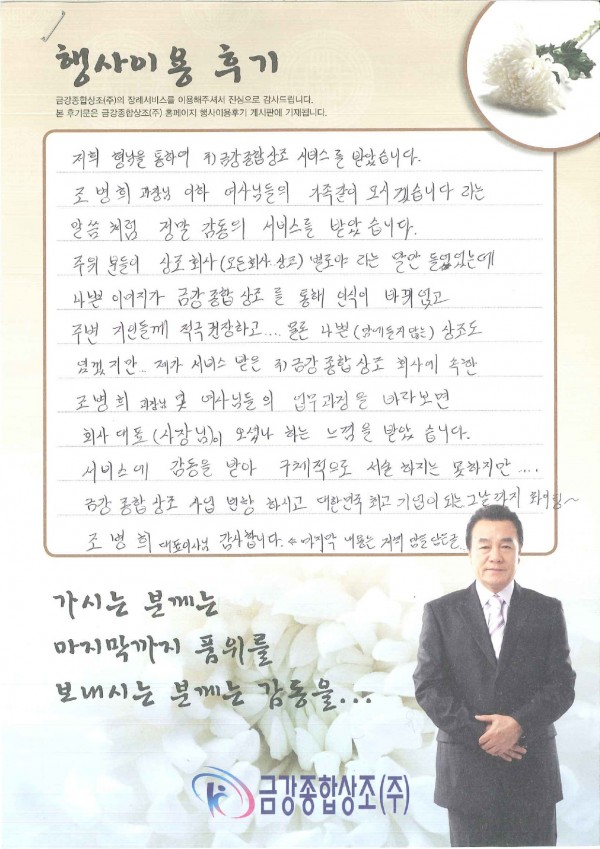 행사이용 후기
금강종합상조(주)의 장례서비스를 이용해주셔서 진심으로 감사드립니다.
본 후기문은 금강종합상조(주) 홈페이지 행사이용후기 게시판에 기재됩니다.
저희 형님을 통하여 주)금강종합상조 서비스를 받았습니다.
조병희 과장님 이하 여사님들의 가족같이 모시겠습니다 라는
말씀 처럼 정말 감동의 서비스를 받았습니다.
주위 분들이 상조회사(모든회사.상조) 별로야 라는 말만 들었었는데
나쁜 이미지가 금강종합상조를 통해 인식이 바뀌었고
주변 지인들께 적극 권장하고.... 물론 나쁜(맘에들지않는) 상조도
있겠지만... 제가 서비스 받은 주)금강종합상조 회사에 속한
조병희 과장님 및 여사님들의 업무과정을 바라보면
회사대표(사장님)이 오셨나 하는 느낌을 받았습니다.
서비스에 감동을 받아 구체적으로 서술 하지는 못하지만....
금강종합상조 사업 번창 하시고 대한민국 최고 기업이 되는 그날까지 화이팅~
조병희 대표이사님 감사합니다. 마지막 내용은 저의
가시는 분께는
마지막까지 품위를
보내시는 분께는 감동을...
금강종합상조(주)